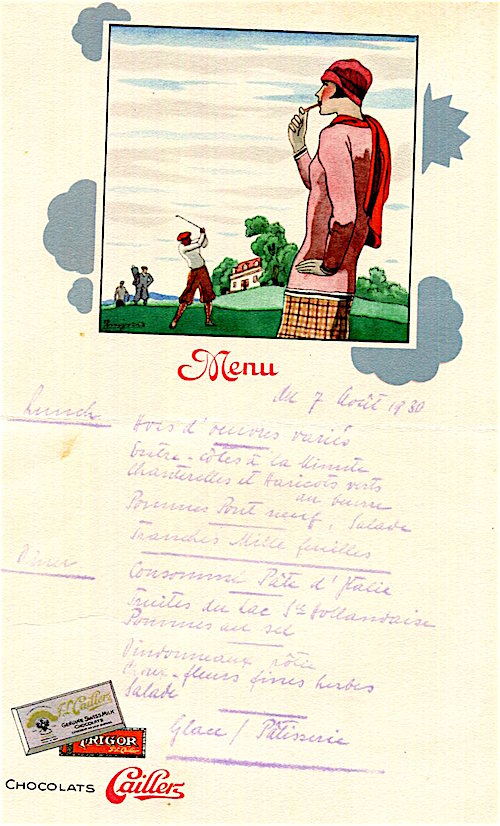 Menu
du 7 Août 1930
Lunch
Hors d'oeuvres variés
Entre-côtes à la Minute
Chanterelles et Haricots verts
au beurre
Pommes Pont neuf, Salade
Tranches Mille feuilles
Diner
Consommé Pâte d'Italie
Truites du Lac Sce Hollandaise
Pommes au sel
Dindonneaux rôtis
Choux-fleurs fines herbes
Salade
Glace / Pâtisserie
F.L. Cailler's
GENUINE SWISS MILK
CHOCOLATE
FRIGOR
F.L. Cailler
CHOCOLATS Cailler's